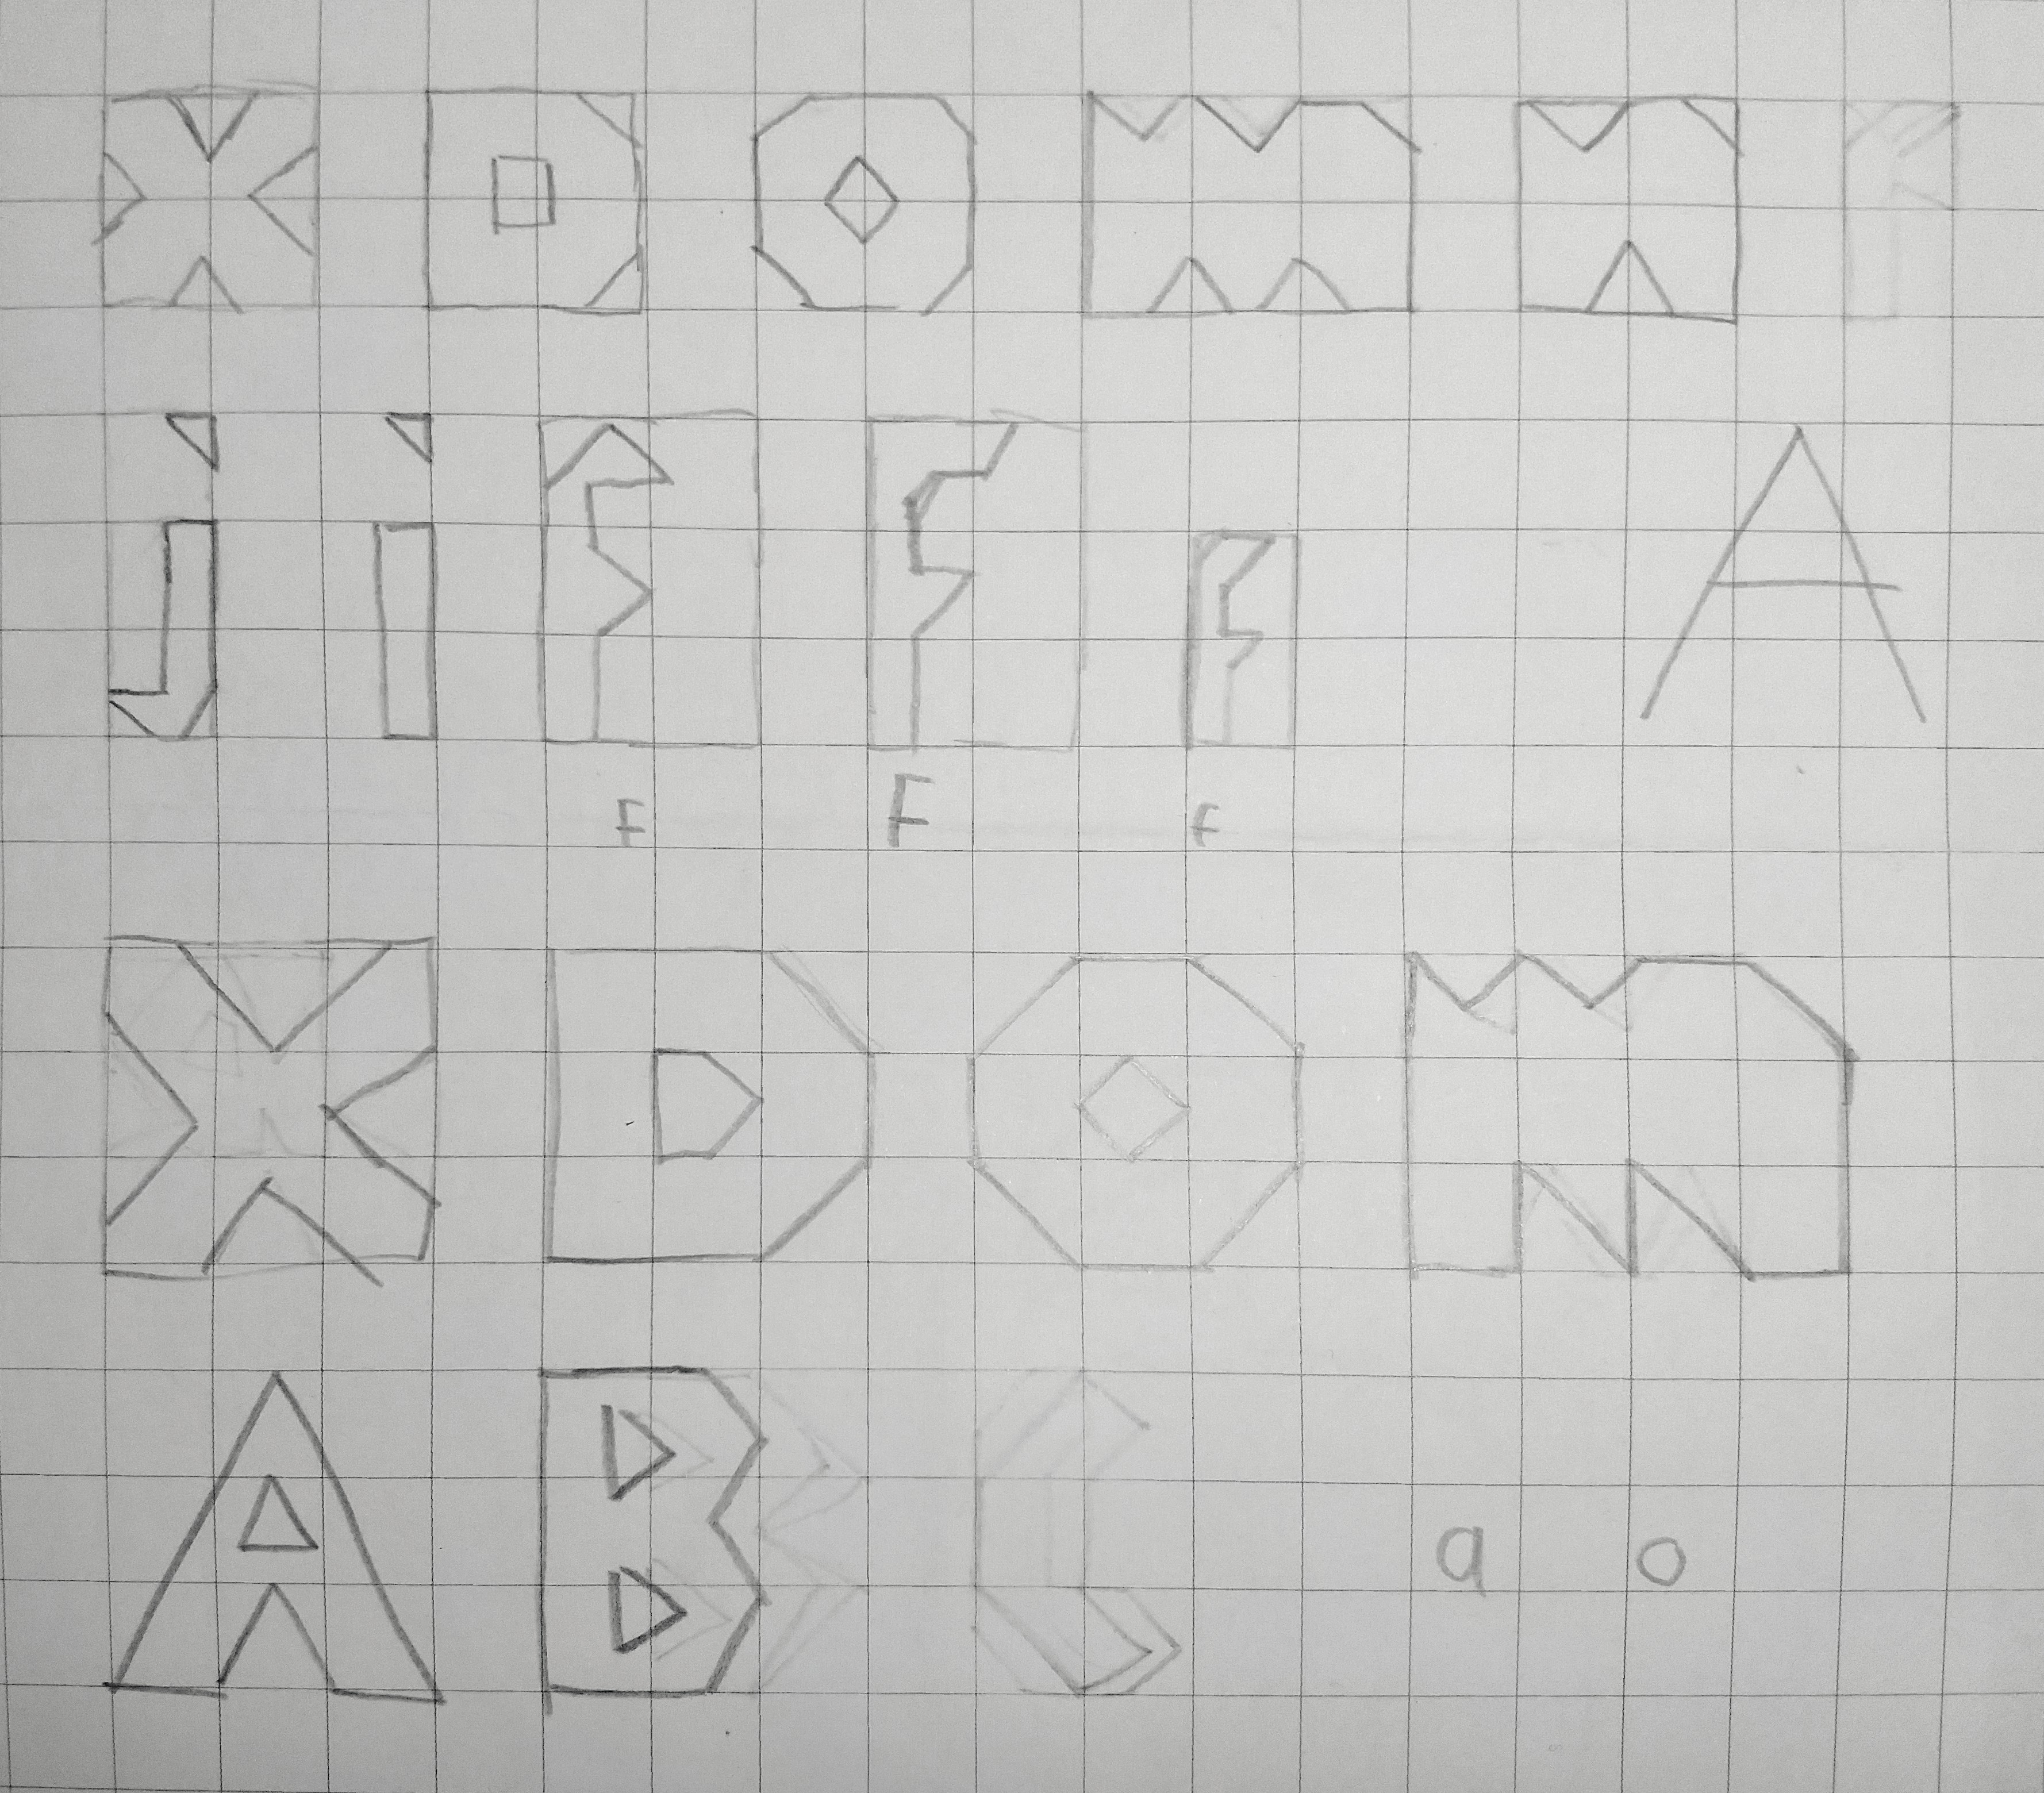 x D o m n r
j i F F f A
F F f
X D O m
A B C a o